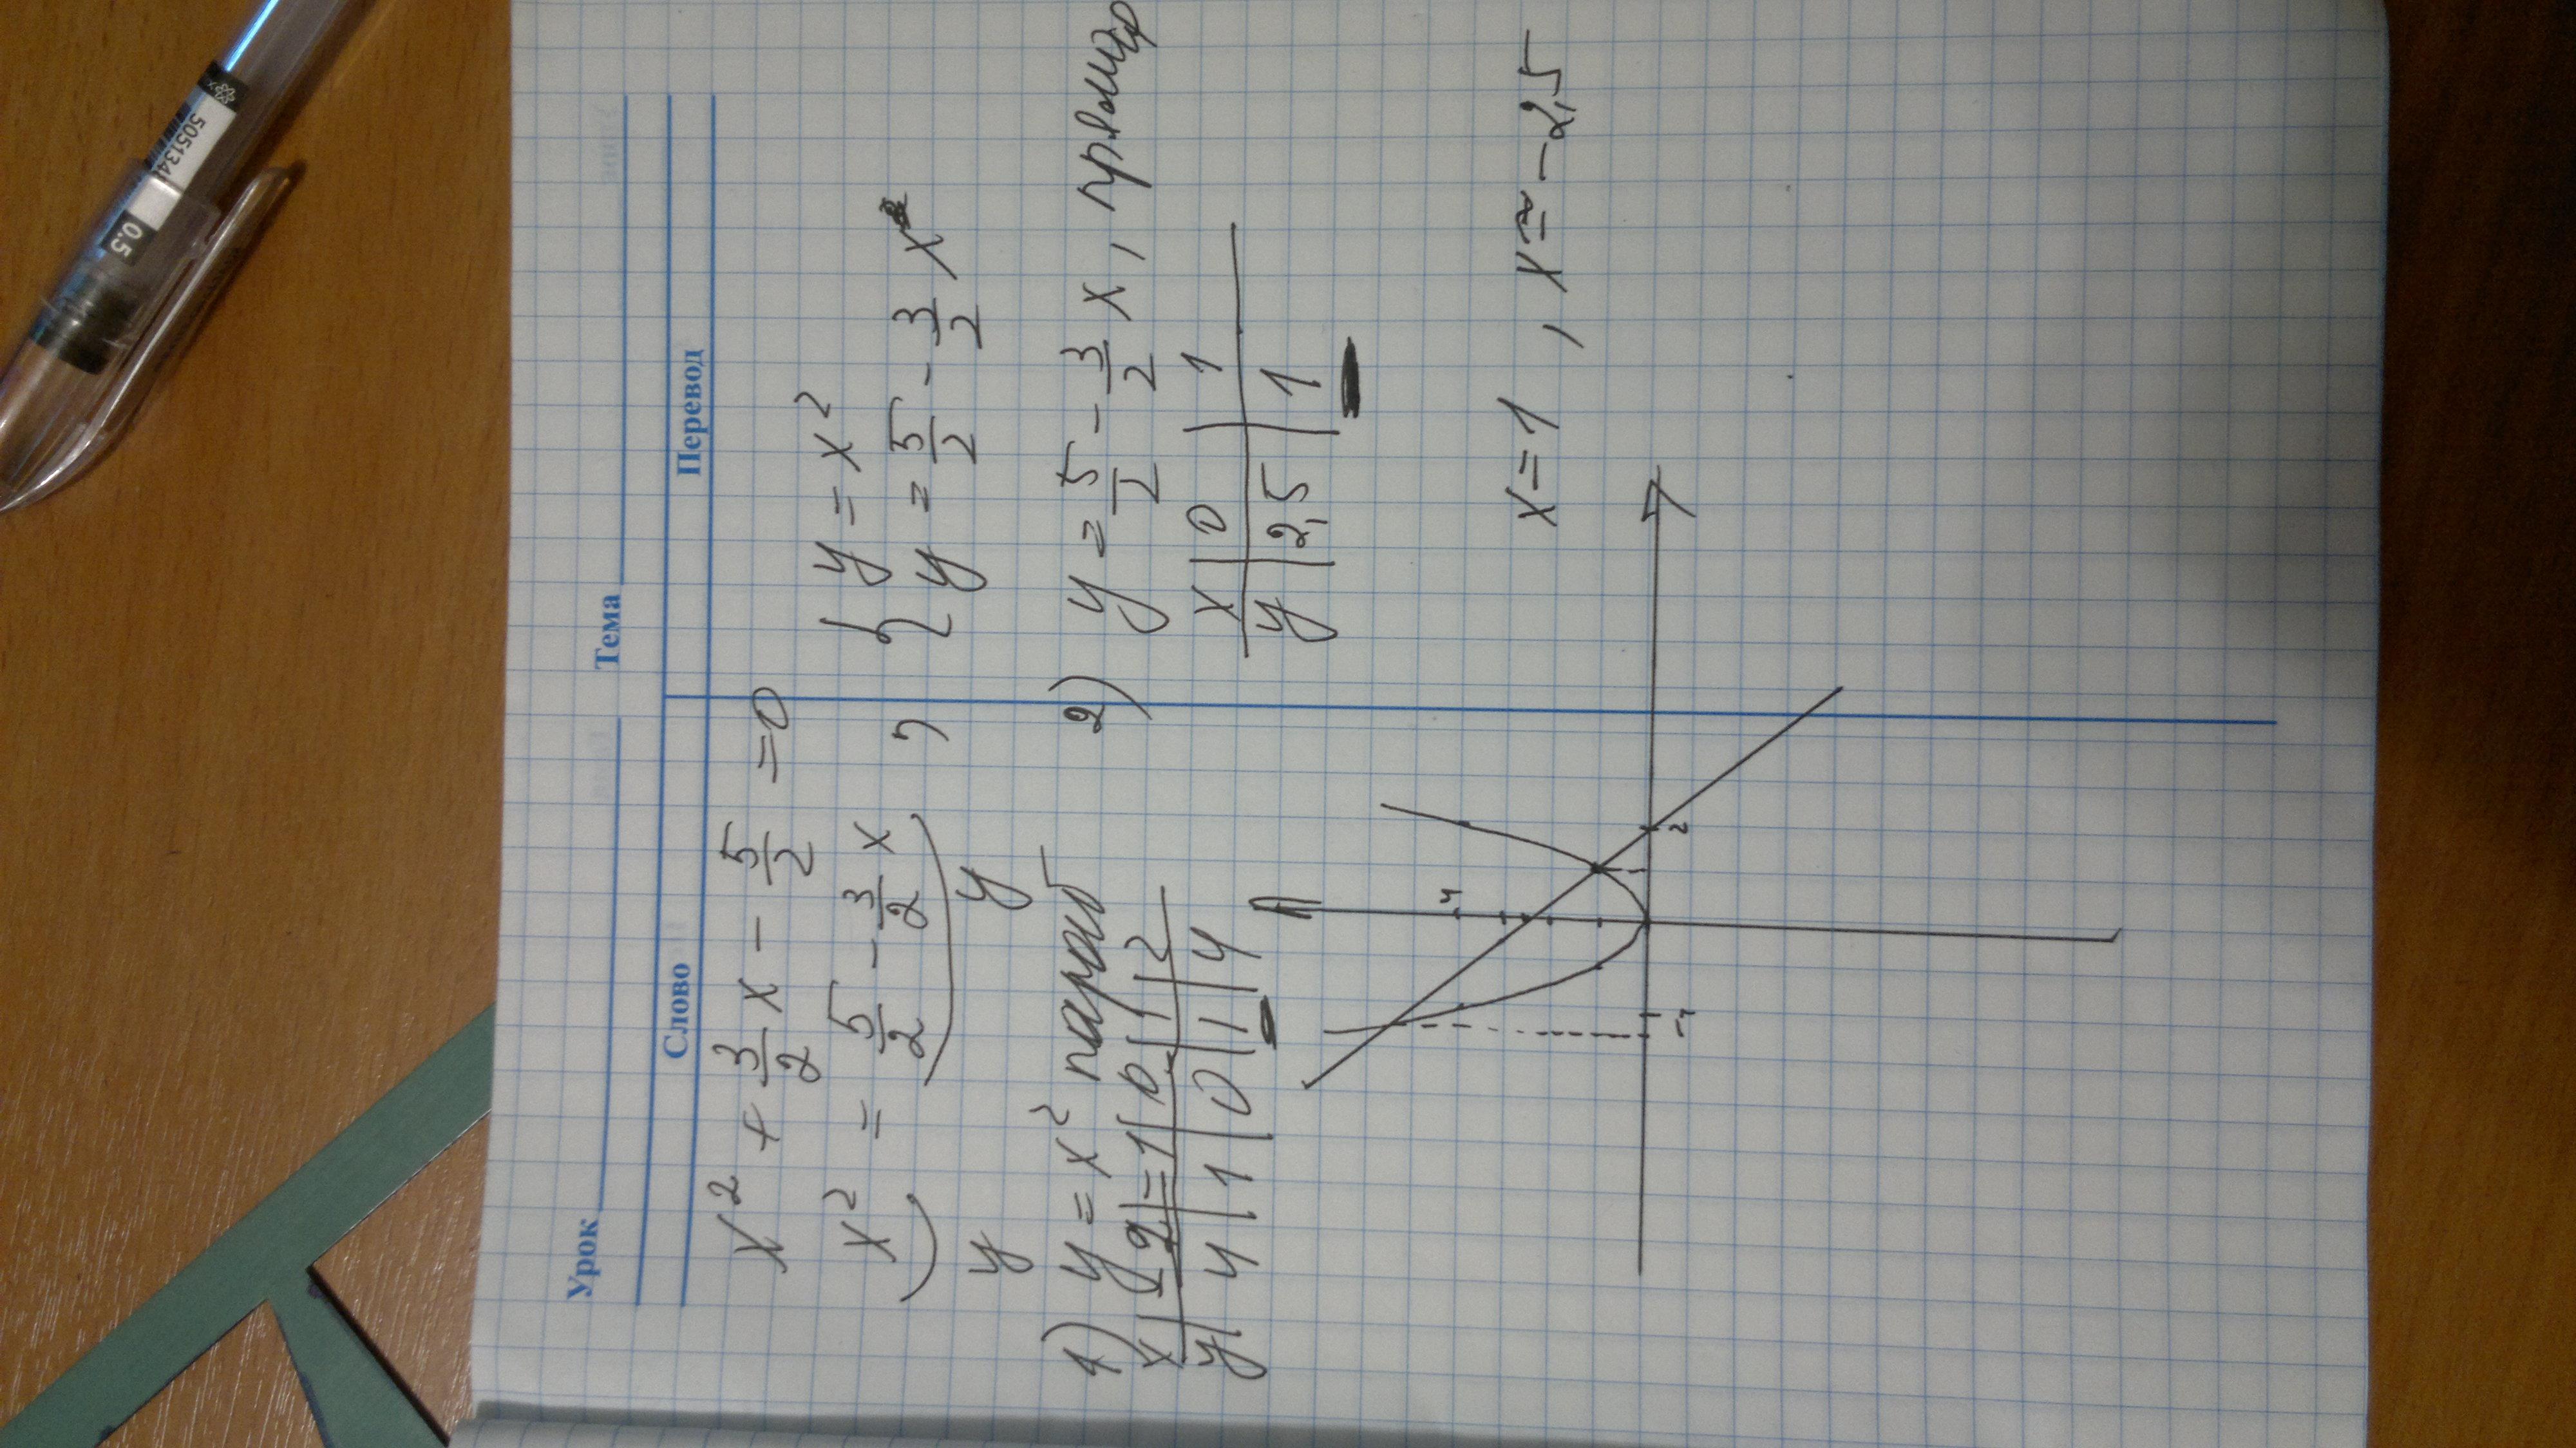 Урок Тема
Слово Перевод
x² + 3/2 x − 5/2 = 0
x² = 5/2 − 3/2 x , { y = x²
y = 5/2 − 3/2 x
y y
1) y = x² параб
x | -2 | -1 | 0 | 1 | 2
y | 4 | 1 | 0 | 1 | 4
2) y = 5/2 − 3/2 x , прямая
x | 0 | 1
y | 2,5 | 1
4
1 2
x = 1 , x ≈ −2,5
0.5